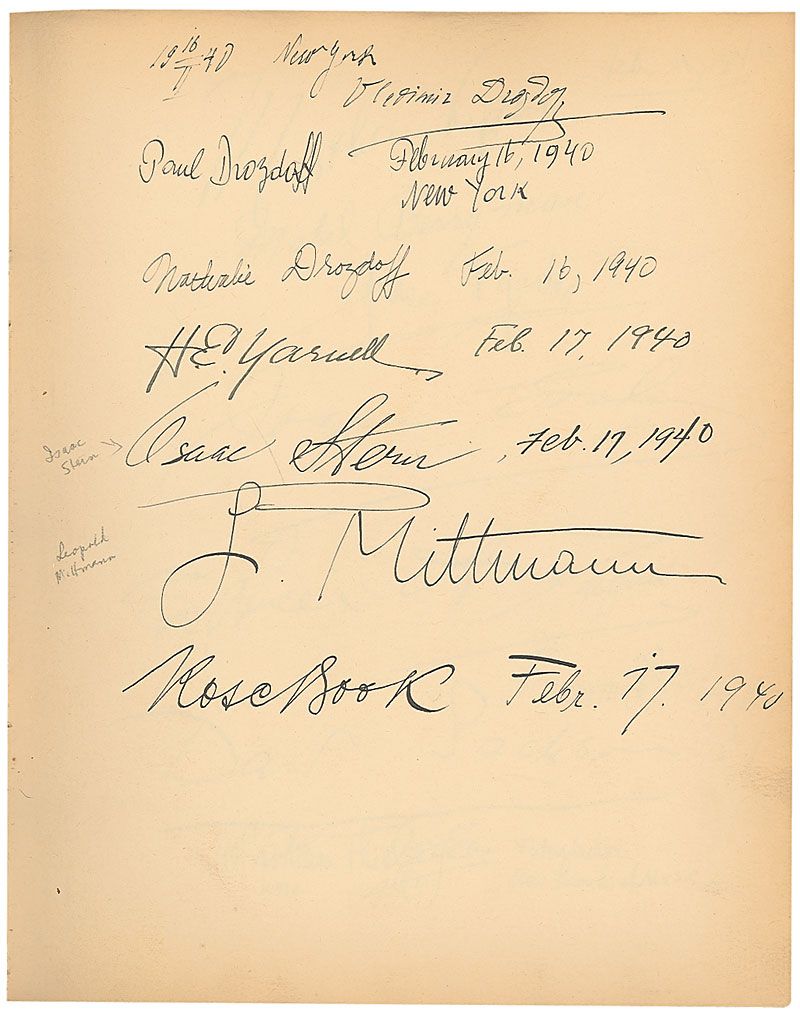 19 16/II 40 New York
Vladimir Drozdoff
Paul Drozdoff February 16, 1940
New York
Nathalie Drozdoff Feb. 16, 1940
H.E. Yarnell Feb. 17, 1940
Isaac Stern → Isaac Stern, Feb. 17, 1940
L. Mittmann
Leopold Mittmann
Rose Book Febr. 17. 1940